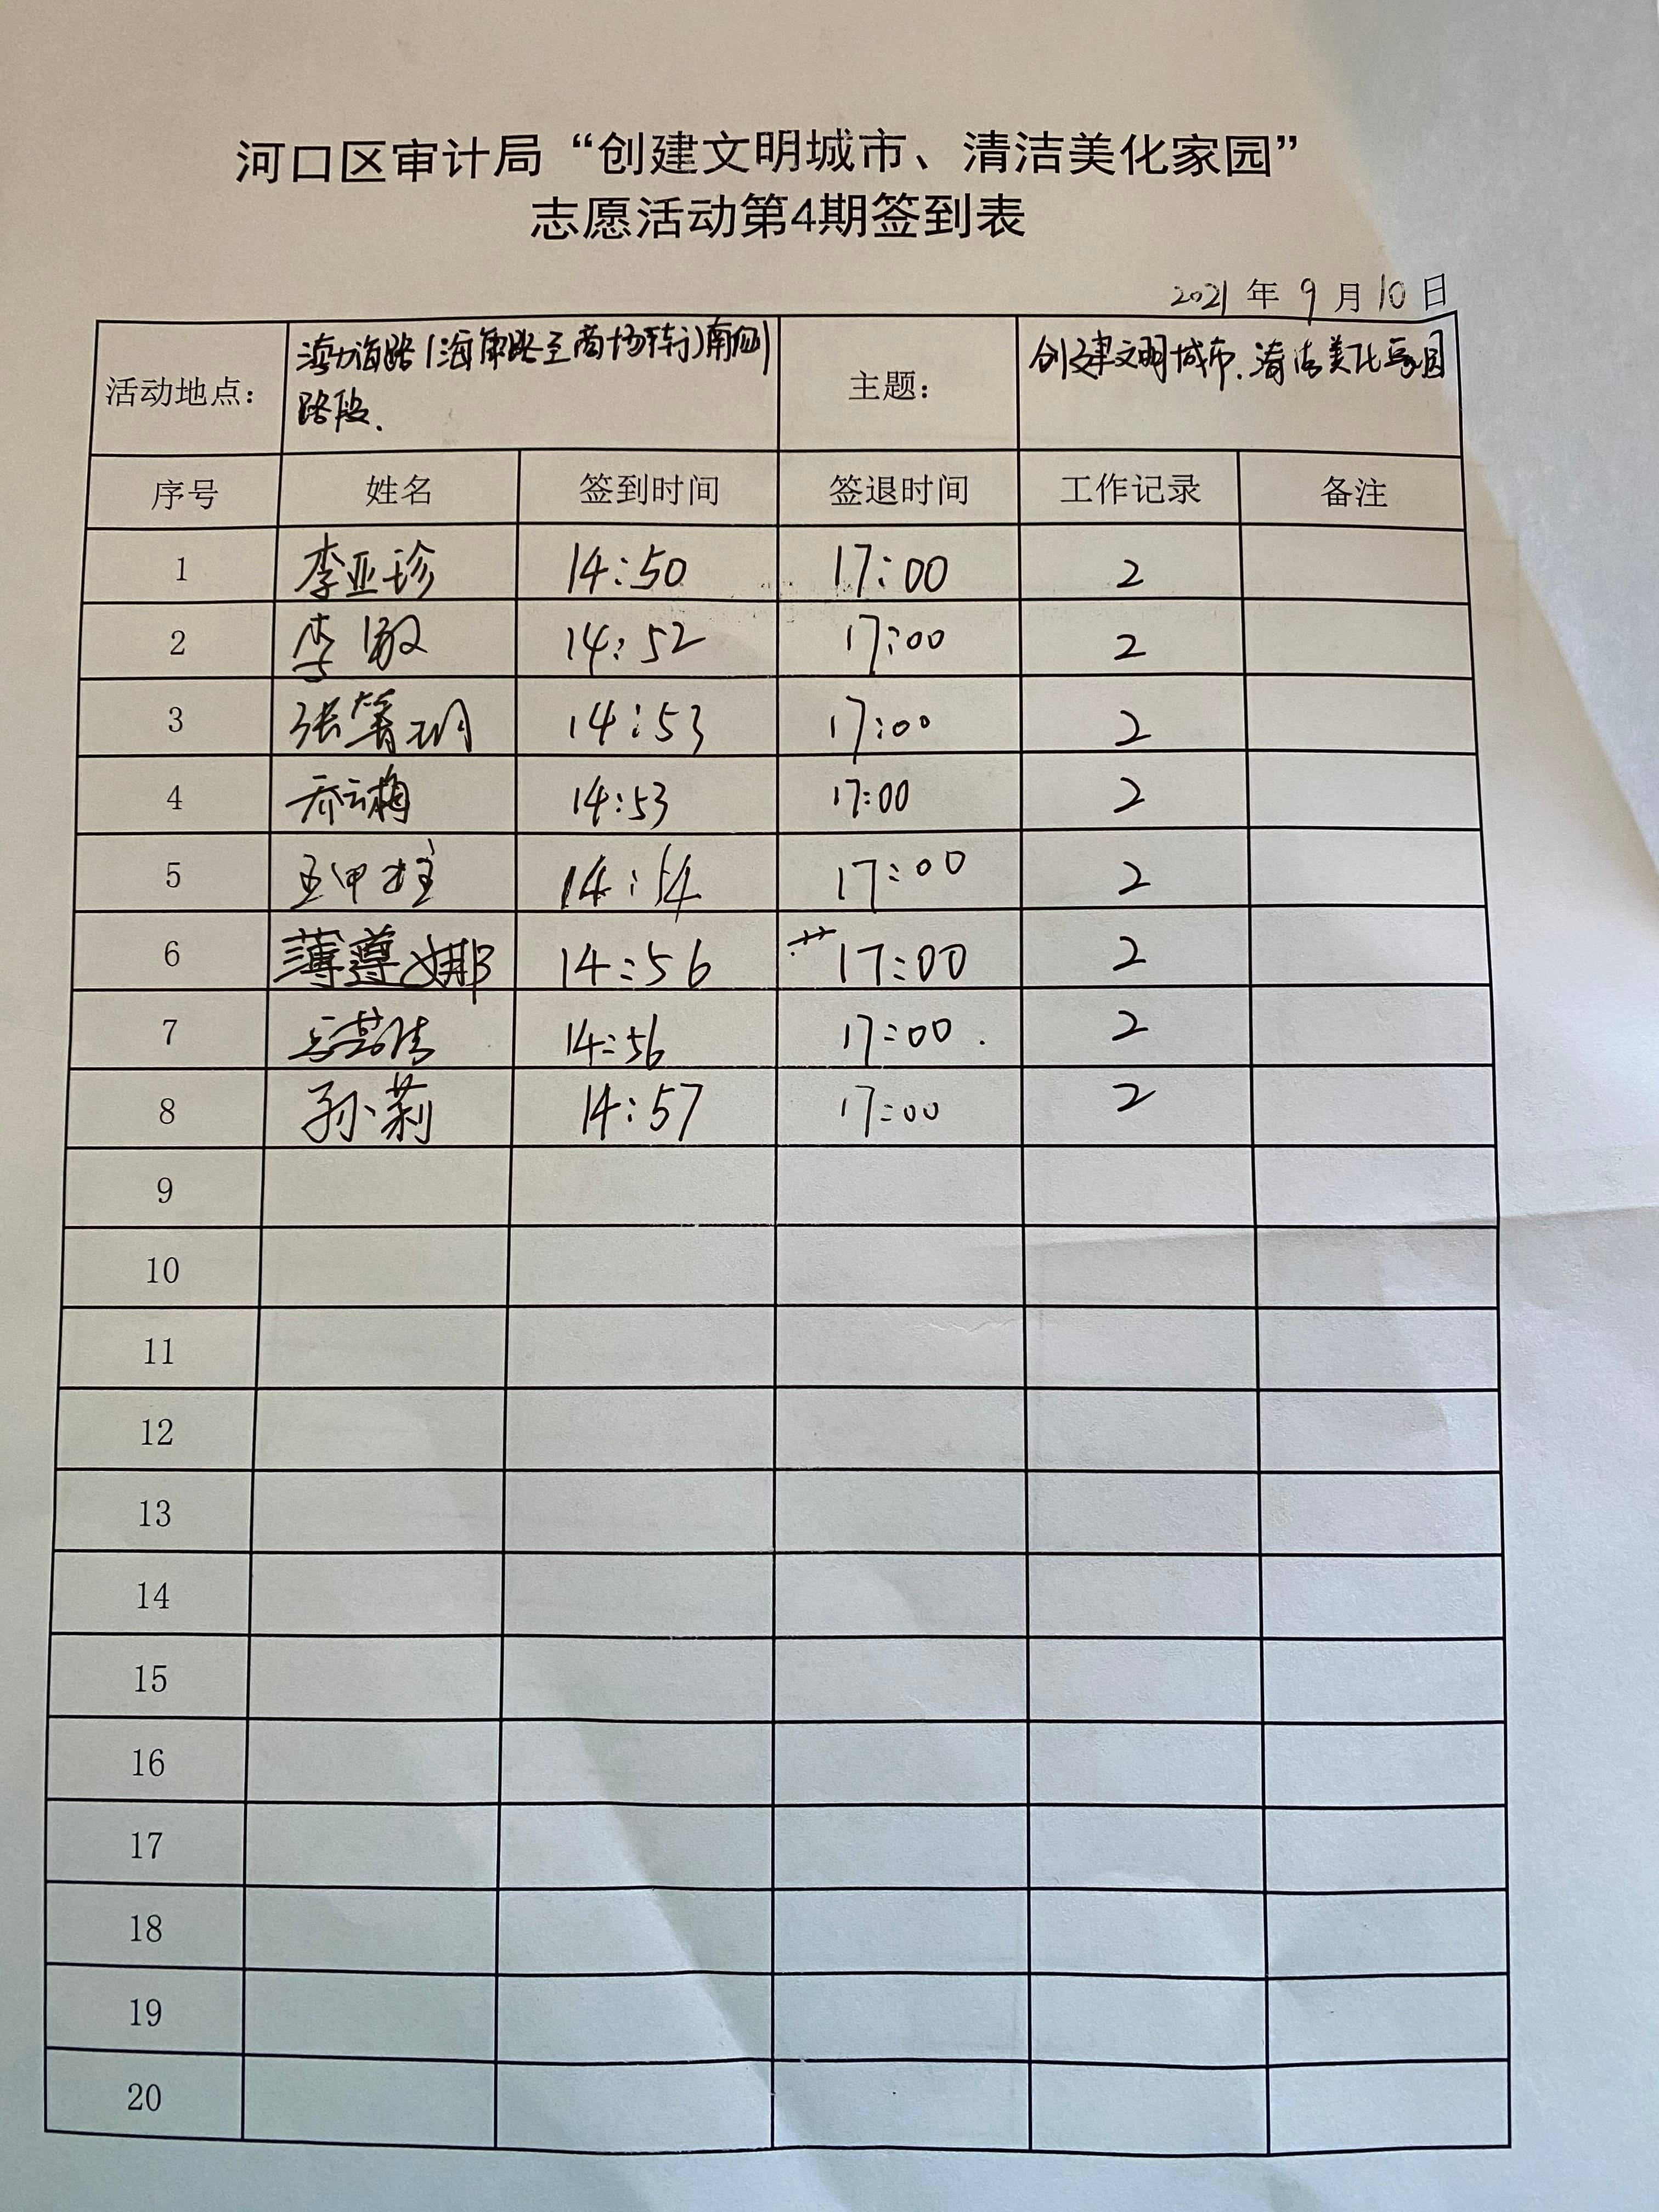 河口区审计局“创建文明城市、清洁美化家园”
志愿活动第4期签到表
2021 年 9 月 10 日
活动地点: 路段. 主题: 创建文明城市.清洁美化家园
序号 姓名 签到时间 签退时间 工作记录 备注
1 李亚珍 14:50 17:00 2
2 李敏 14:52 17:00 2
3 张 14:53 17:00 2
4 乔云梅 14:53 17:00 2
5 王甲柱 14:54 17:00 2
6 薄尊娜 14:56 17:00 2
7 14:56 17:00. 2
8 孙莉 14:57 17:00 2
9
10
11
12
13
14
15
16
17
18
19
20